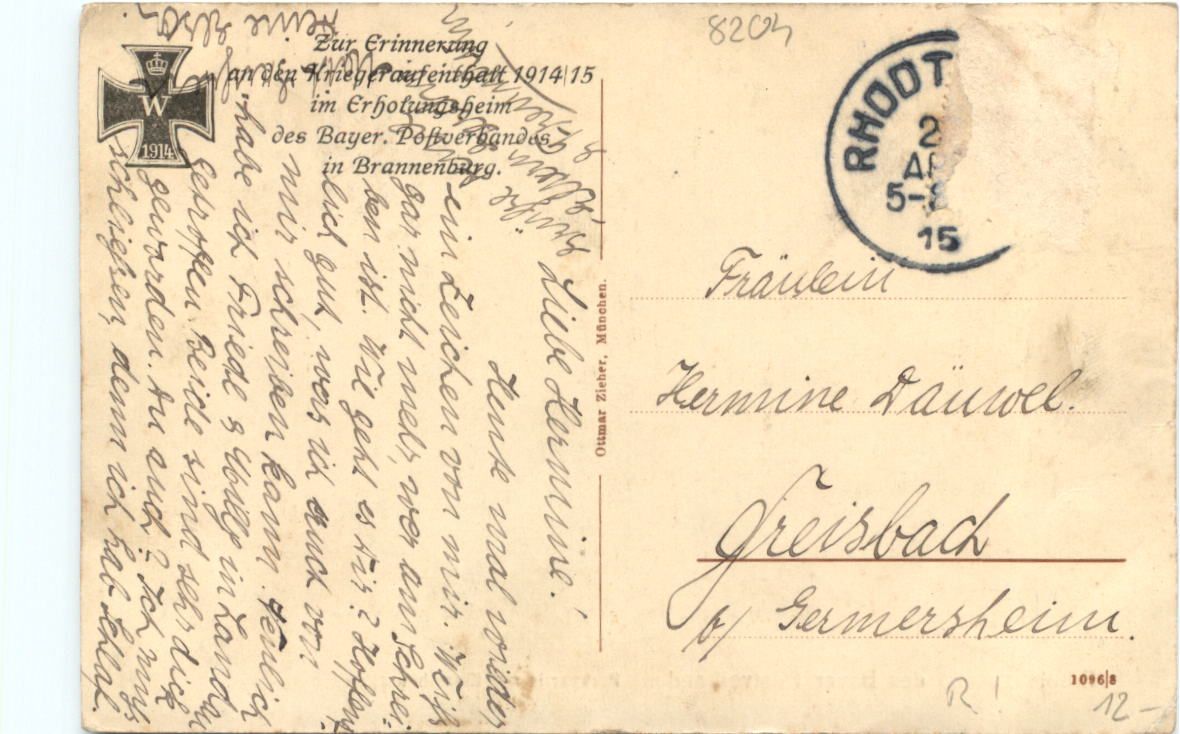 8204
Zur Erinnerung
an den Kriegeraufenthalt 1914/15
im Erholungsheim
des Bayer. Postverbandes
in Brannenburg.
W
1914
RHODT
2
AP
5-8
15
Liebe Hermine!
Heute mal wieder
ein Zeichen von mir. Weiß
gar nicht mehr, wer am Schrei:
ben ist. Wie geht es dir? Hoffent
lich gut, was ich auch von
mir schreiben kann. Neulich
habe ich Friede & Willy in Landau
getroffen. Beide sind sehr dick
geworden. Du auch? Ich muß
schließen, denn ich hab Schlaf.
Deine Elsa.
Grüße
Ottmar Zieher, München.
Fräulein
Hermine Däuwel.
Freisbach
b/ Germersheim.
1096/8
R!
12-